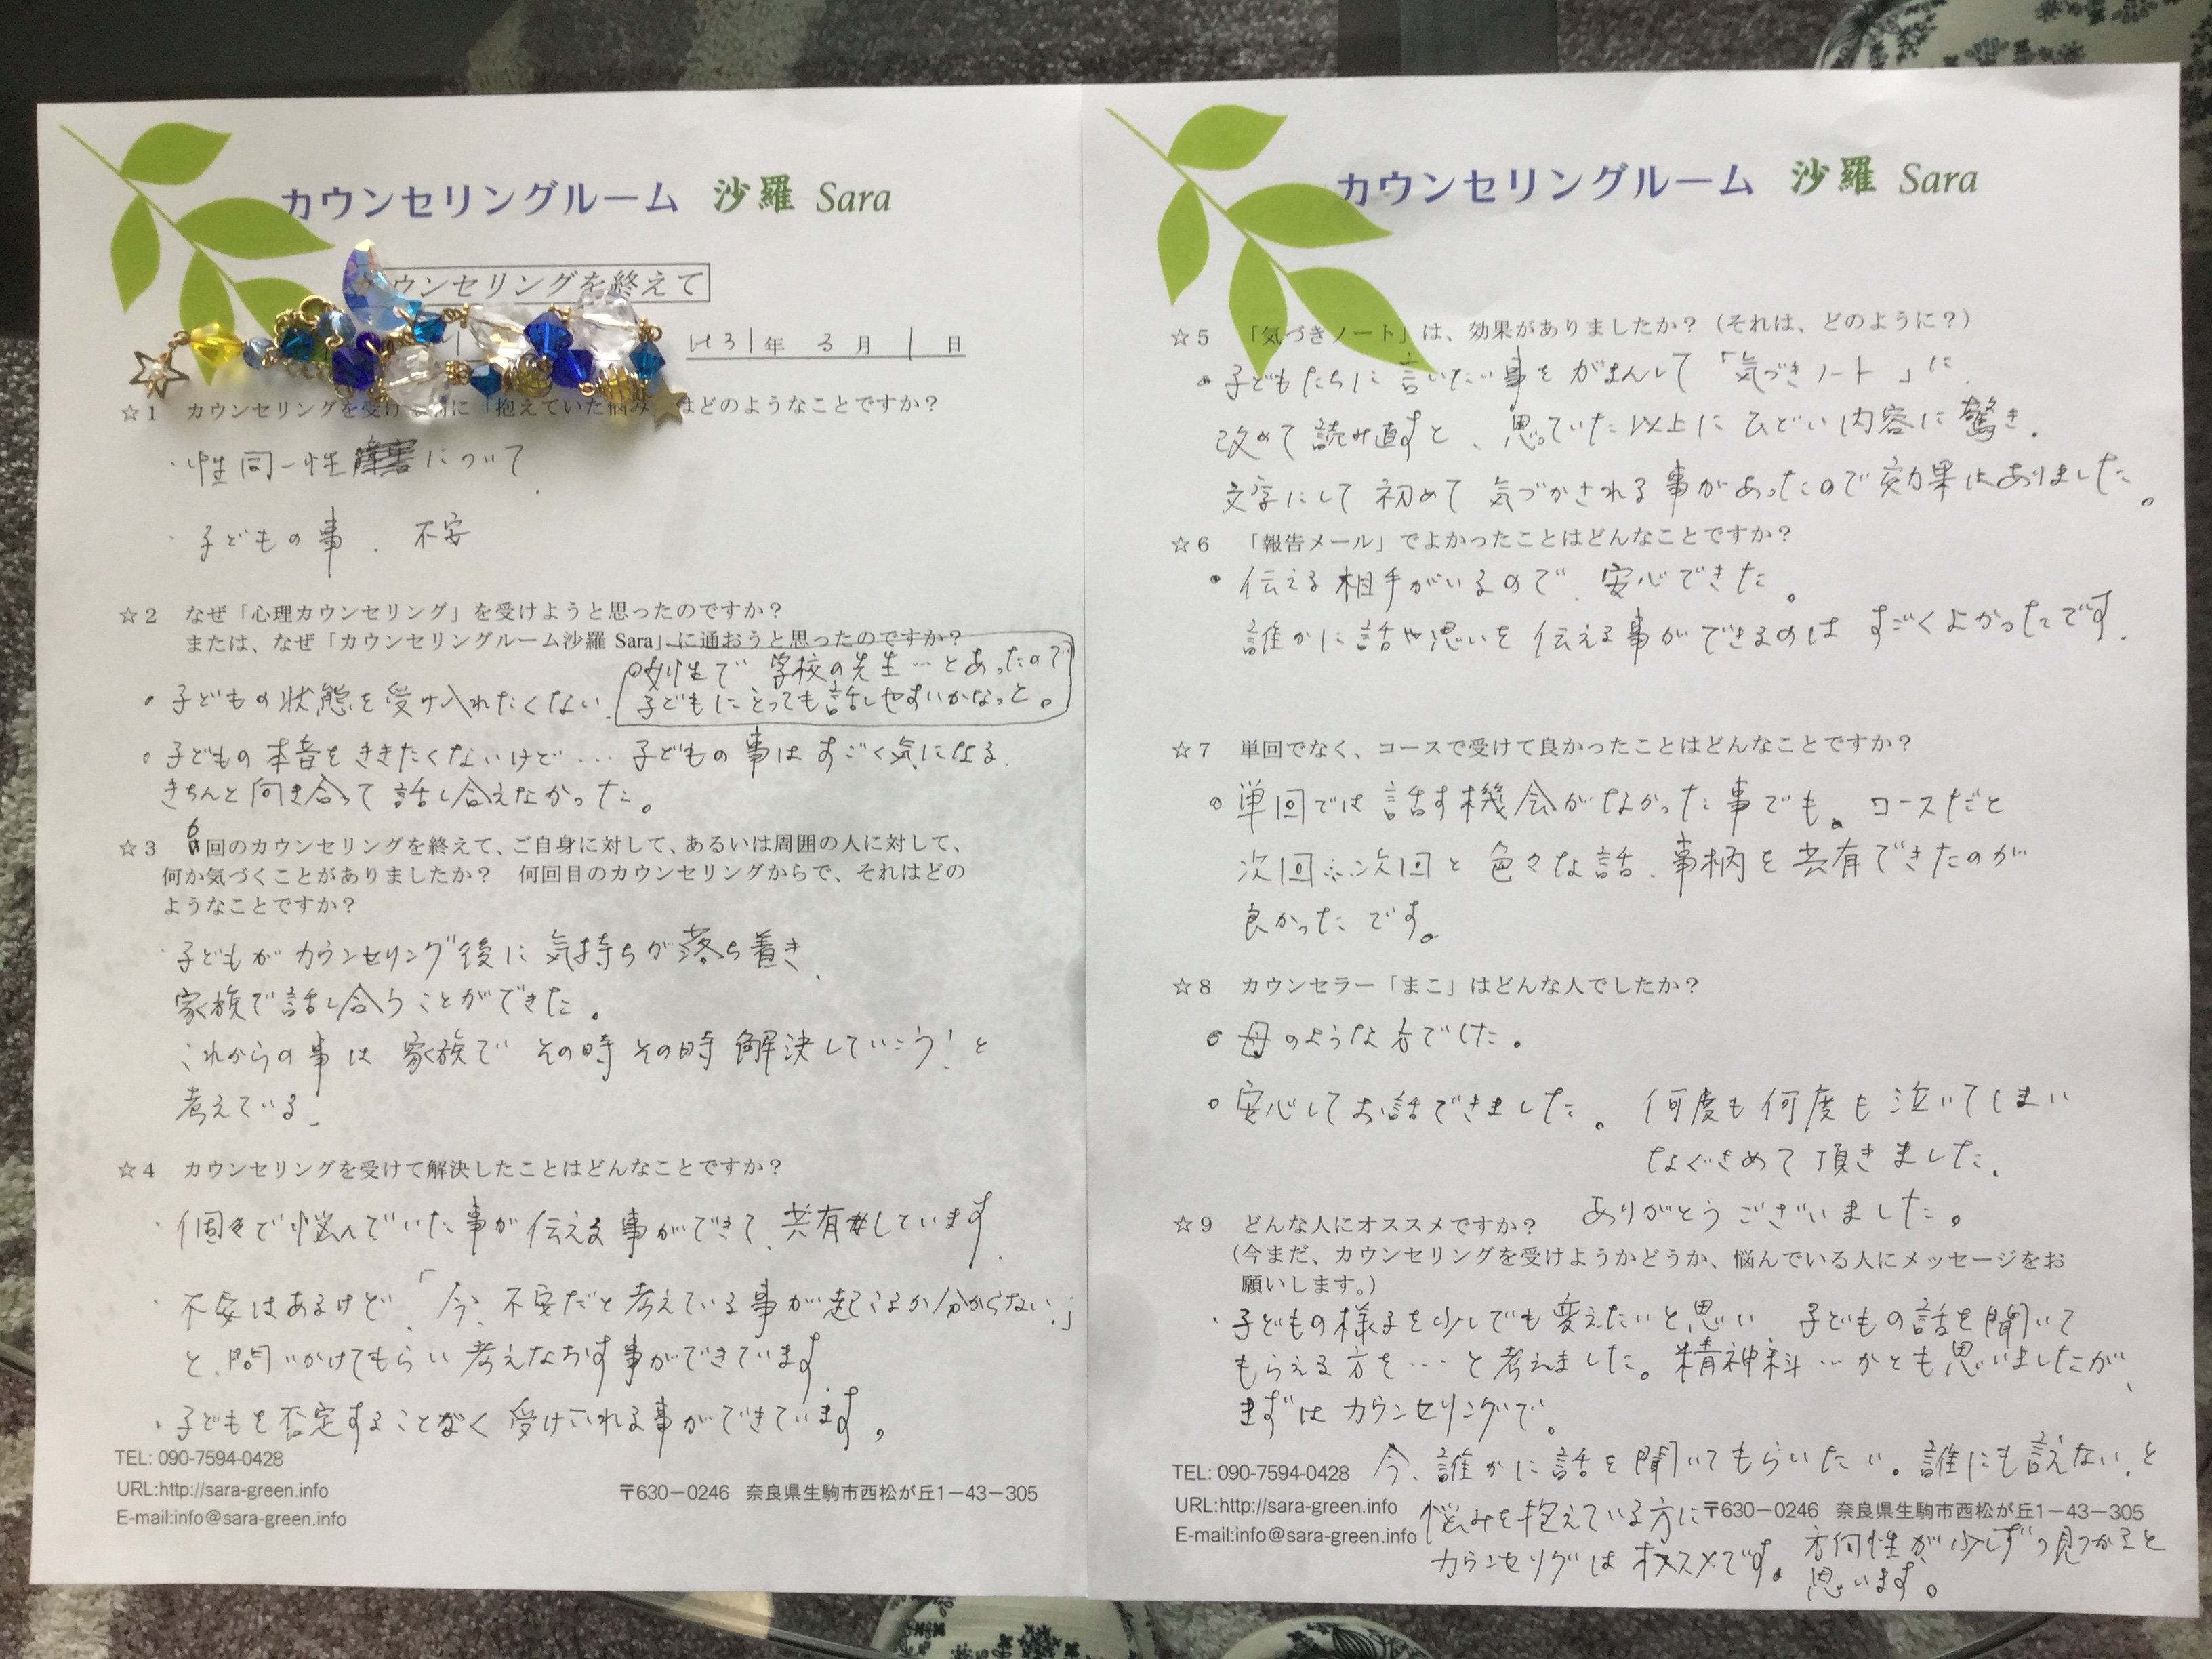 カウンセリングルーム 沙羅 Sara
ウンセリングを終えて
H31年 3月 1日
☆1 カウンセリングを受け 前に「抱えていた悩み」はどのようなことですか?
・性同一性障害について.
・子どもの事、不安
☆2 なぜ「心理カウンセリング」を受けようと思ったのですか?
または、なぜ「カウンセリングルーム沙羅 Sara」に通おうと思ったのですか?
女性で 学校の先生…とあったので
子どもにとっても話しやすいかなっと。
・子どもの状態を受け入れたくない.
・子どもの本音をききたくないけど… 子どもの事は すごく気になる.
きちんと向き合って 話し合えなかった。
☆3 6回のカウンセリングを終えて、ご自身に対して、あるいは周囲の人に対して、
何か気づくことがありましたか? 何回目のカウンセリングからで、それはどの
ようなことですか?
・子どもが カウンセリング後に 気持ちが落ち着き、
家族で話し合うことができた。
これからの事は 家族で その時その時 解決していこう!と
考えている.
☆4 カウンセリングを受けて解決したことはどんなことですか?
・個々で悩んでいた事が伝える事ができて、共有しています.
・不安はあるけど、「今、不安だと考えている事が起こるか分からない.」
と、問いかけてもらい 考えなおす事ができています.
・子どもを否定することなく 受け入れる事ができています。
TEL: 090-7594-0428
URL:http://sara-green.info
E-mail:info@sara-green.info
〒630-0246 奈良県生駒市西松が丘1-43-305
カウンセリングルーム 沙羅 Sara
☆5 「気づきノート」は、効果がありましたか?(それは、どのように?)
・子どもたちに 言いたい事を がまんして 「気づきノート」に、
改めて 読み直すと、思っていた以上に ひどい内容に驚き.
文字にして 初めて 気づかされる事があったので効果はありました。
☆6 「報告メール」でよかったことはどんなことですか?
・伝える相手がいるので、安心できた。
誰かに話や思いを 伝える事ができるのは すごくよかったです.
☆7 単回でなく、コースで受けて良かったことはどんなことですか?
・単回では 話す機会がなかった事でも、コースだと
次回※次回と 色々な話、事柄を共有できたのが
良かったです。
☆8 カウンセラー「まこ」はどんな人でしたか?
・母のような方でした。
・安心してお話できました。 何度も何度も泣いてしまい
なぐさめて 頂きました.
ありがとうございました。
☆9 どんな人にオススメですか?
(今まだ、カウンセリングを受けようかどうか、悩んでいる人にメッセージをお
願いします。)
・子どもの様子を少しでも変えたいと思い 子どもの話を聞いて
もらえる方を…と考えました。精神科…かとも思いましたが、
まずは カウンセリングで。
今、誰かに話を聞いてもらいたい。誰にも言えない.と
悩みを抱えている方に
カウンセリグは オススメです。 方向性が少しずつ見つかると
思います。
TEL: 090-7594-0428
URL:http://sara-green.info
E-mail:info@sara-green.info
〒630-0246 奈良県生駒市西松が丘1-43-305